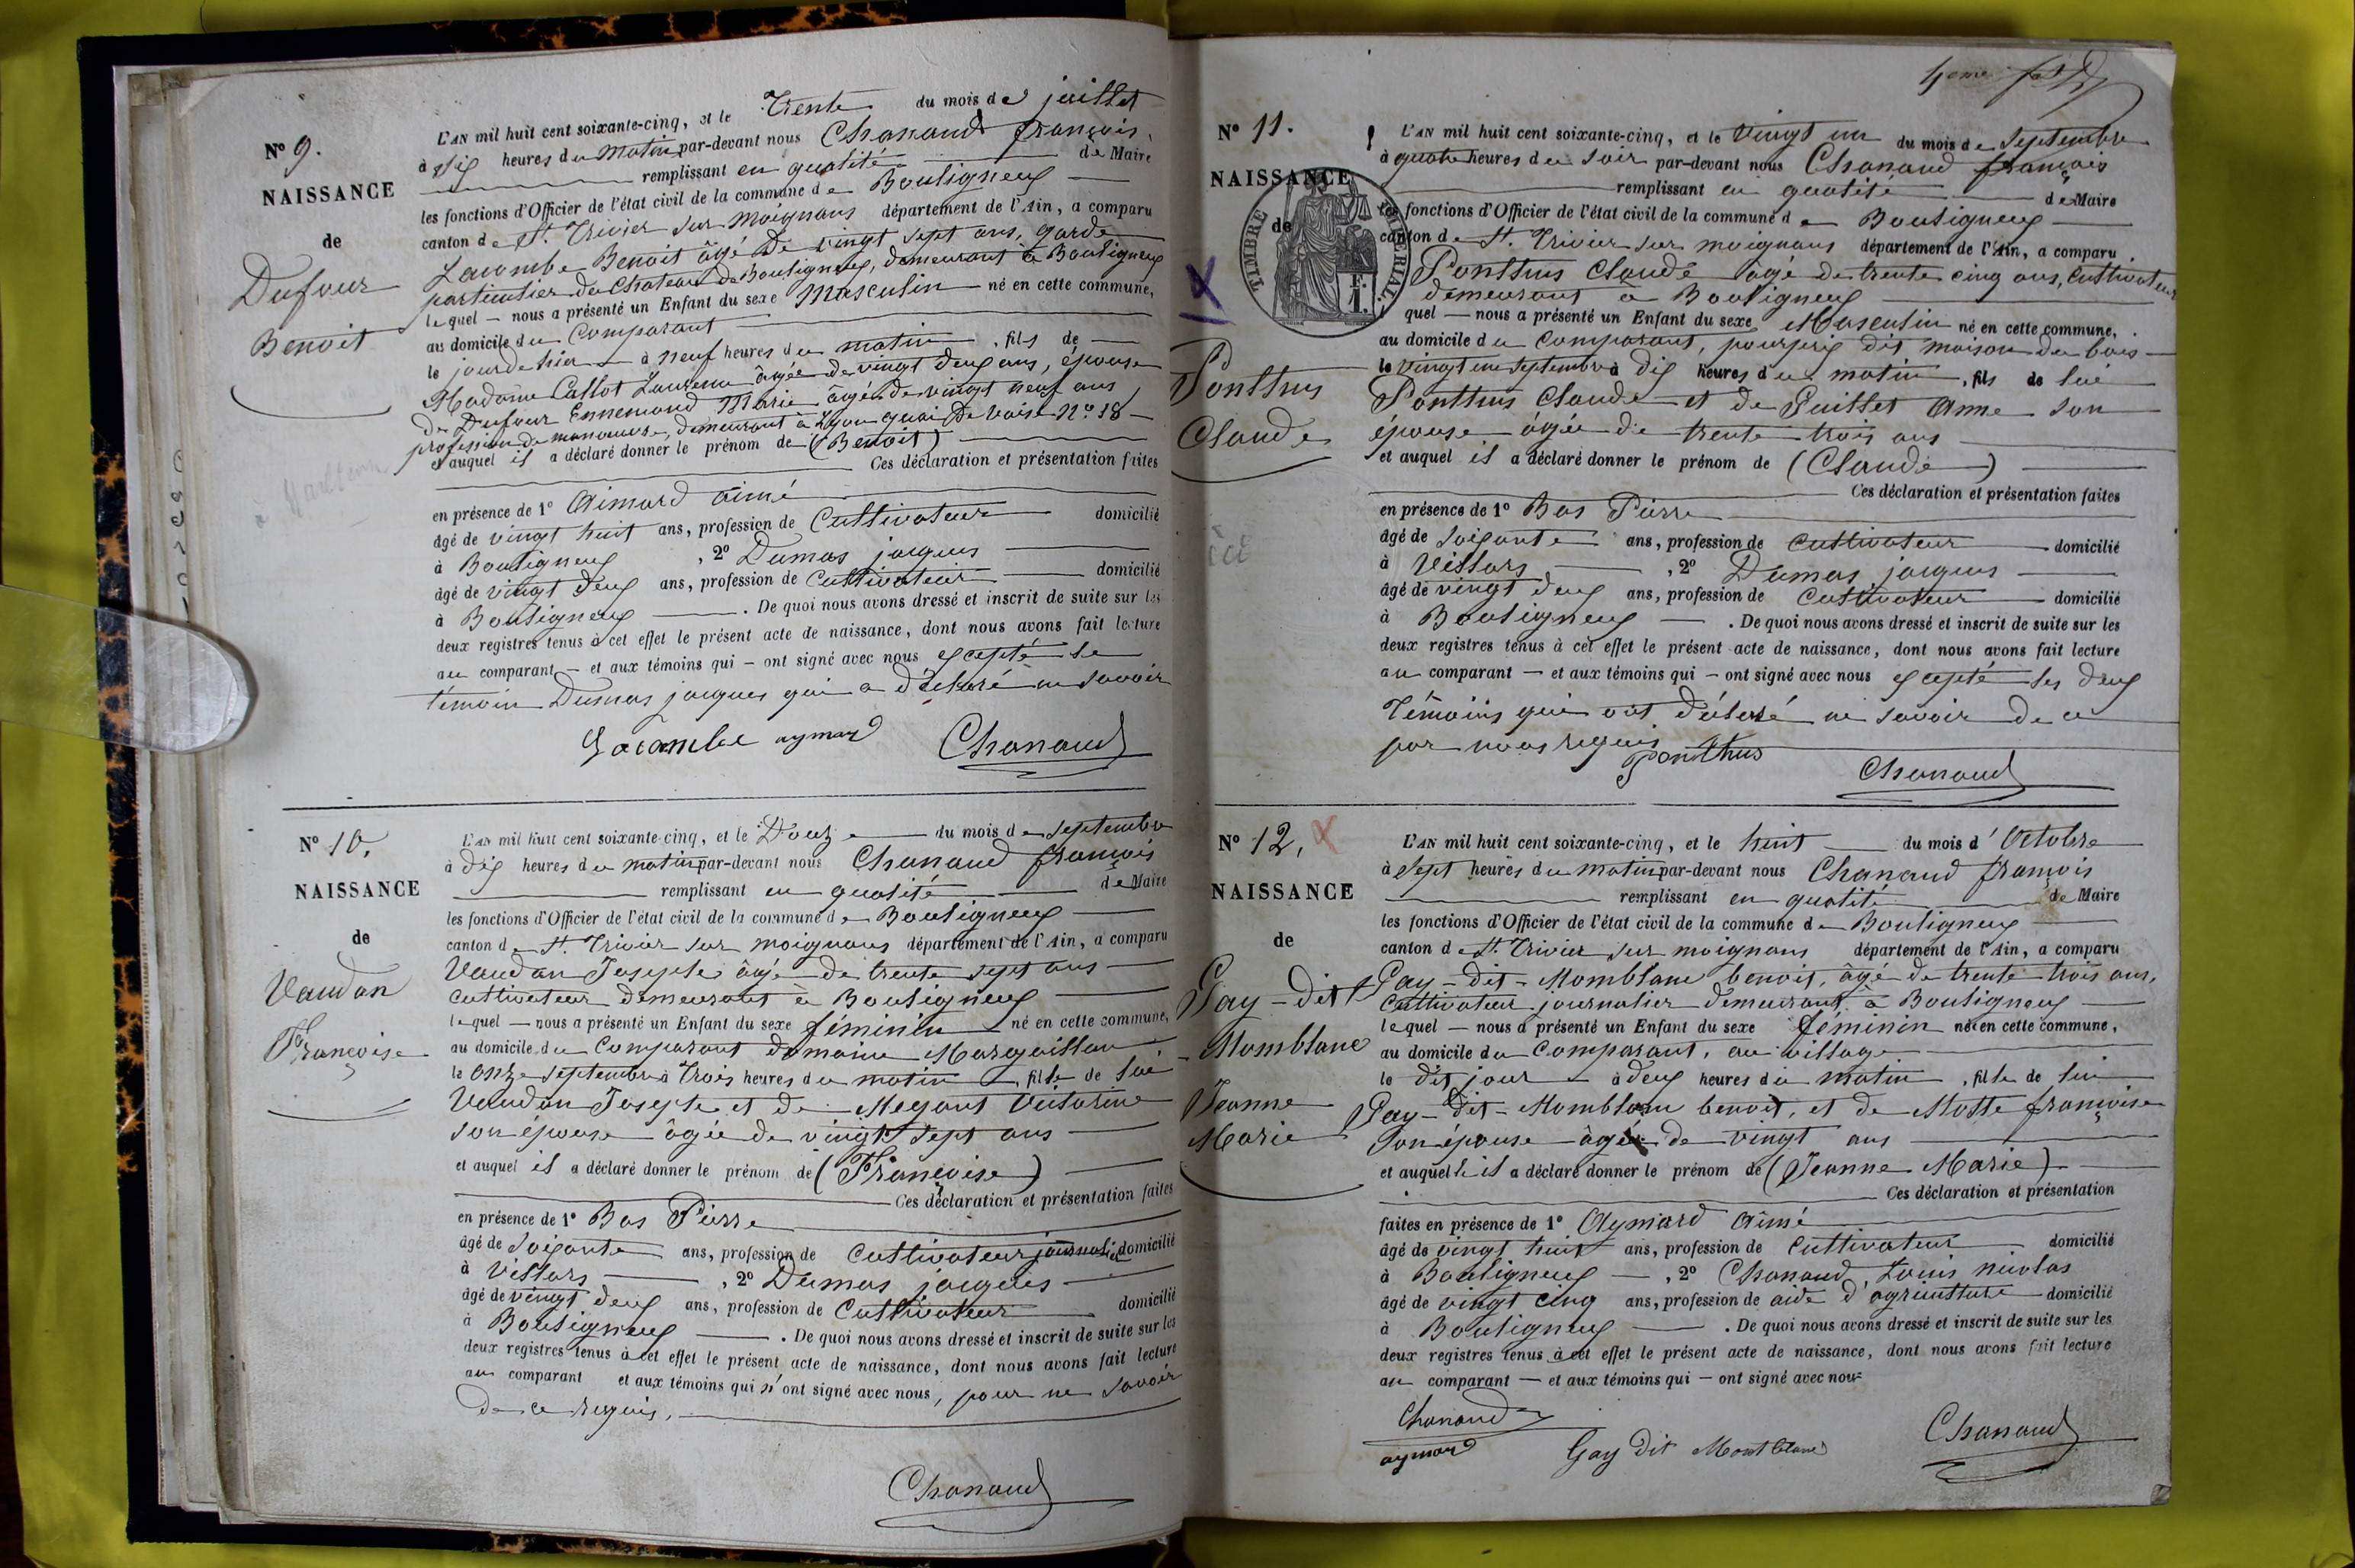 N° 9.
NAISSANCE
de
Dufour
Benoit
L'AN mil huit cent soixante-cinq, et le Trente du mois de juillet
à dix heures du matin par-devant nous Chanaud françois
remplissant en qualité de Maire
les fonctions d'Officier de l'état civil de la commune de Bouligneux
canton de St. Trivier sur moignans département de l'Ain, a comparu
Lacombe Benoit âgé de vingt sept ans, garde
particulier du Chateau de Bouligneux, demeurant à Bouligneux
lequel nous a présenté un Enfant du sexe Masculin né en cette commune,
au domicile du Comparant
le jour de hier à neuf heures du matin, fils de
Madame Callot Laurence âgée de vingt deux ans, épouse
de Dufour Ennemond Marie âgé de vingt neuf ans
profession de manoeuvre, demeurant à Lyon quai De Vaise N° 18
et auquel il a déclaré donner le prénom de (Benoit)
Ces déclaration et présentation faites
en présence de 1° Aimard aimé
âgé de vingt huit ans, profession de Cultivateur domicilié
à Bouligneux, 2° Dumas jacques
âgé de vingt deux ans, profession de Cultivateur domicilié
à Bouligneux. De quoi nous avons dressé et inscrit de suite sur les
deux registres tenus à cet effet le présent acte de naissance, dont nous avons fait lecture
au comparant — et aux témoins qui — ont signé avec nous excepté le
témoin Dumas jacques qui a déclaré ne savoir
Lacombe aymard Chanaud
N° 10.
NAISSANCE
de
Vaudan
Françoise
L'AN mil huit cent soixante-cinq, et le Douze du mois de septembre
à dix heures du matin par-devant nous Chanaud françois
remplissant en qualité de Maire
les fonctions d'Officier de l'état civil de la commune de Bouligneux
canton de St. Trivier sur moignans département de l'Ain, a comparu
Vaudan Josephe âgé de trente sept ans
cultivateur demeurant à Bouligneux
lequel — nous a présenté un Enfant du sexe féminin né en cette commune,
au domicile du Comparant domaine
le onze septembre à trois heures du matin, fille de lui
Vaudan Josephe et de Victorine
son épouse âgée de vingt sept ans
et auquel il a déclaré donner le prénom de (Françoise)
Ces déclaration et présentation faites
en présence de 1° Bas Pierre
âgé de soixante ans, profession de Cultivateur journalier domicilié
à Villars, 2° Dumas jacques
âgé de vingt deux ans, profession de Cultivateur domicilié
à Bouligneux. De quoi nous avons dressé et inscrit de suite sur les
deux registres tenus à cet effet le présent acte de naissance, dont nous avons fait lecture
au comparant et aux témoins qui n'ont signé avec nous, pour ne savoir
de ce requis.
Chanaud
4eme
N° 11.
NAISSANCE
de
TIMBRE IMPERIAL
1 F.
Ponthus
Claude
L'AN mil huit cent soixante-cinq, et le vingt un du mois de Septembre
à quatre heures du soir par-devant nous Chanaud françois
remplissant en qualité de Maire
les fonctions d'Officier de l'état civil de la commune de Bouligneux
canton de St. Trivier sur moignans département de l'Ain, a comparu
Ponthus Claude âgé de trente cinq ans, Cultivateur
demeurant à Bouligneux
quel — nous a présenté un Enfant du sexe Masculin né en cette commune,
au domicile du Comparant, pourpris dit maison du bois
le vingt un septembre à dix heures du matin, fils de lui
Ponthus Claude et de Guillet Anne son
épouse âgée de trente trois ans
et auquel il a déclaré donner le prénom de (Claude)
Ces déclaration et présentation faites
en présence de 1° Bas Pierre
âgé de soixante ans, profession de Cultivateur domicilié
à Villars, 2° Dumas jacques
âgé de vingt deux ans, profession de Cultivateur domicilié
à Bouligneux. De quoi nous avons dressé et inscrit de suite sur les
deux registres tenus à cet effet le présent acte de naissance, dont nous avons fait lecture
au comparant — et aux témoins qui — ont signé avec nous excepté les deux
témoins qui ont déclaré ne savoir de ce
par nous requis
Ponthus Chanaud
N° 12.
NAISSANCE
de
Gay-dit
Momblanc
Jeanne
Marie
L'AN mil huit cent soixante-cinq, et le huit du mois d'Octobre
à sept heures du matin par-devant nous Chanaud françois
remplissant en qualité de Maire
les fonctions d'Officier de l'état civil de la commune de Bouligneux
canton de St. Trivier sur moignans département de l'Ain, a comparu
Gay-dit-Momblanc benoit, âgé de trente trois ans,
Cultivateur journalier demeurant à Bouligneux
lequel — nous a présenté un Enfant du sexe féminin né en cette commune,
au domicile du Comparant, au village
le dit jour à deux heures du matin, fille de lui
Gay-dit-Momblanc benoit, et de Motte françoise
son épouse âgée de vingt ans
et auquelle il a déclaré donner le prénom de (Jeanne Marie)
Ces déclaration et présentation
faites en présence de 1° Aymard Aimé
âgé de vingt huit ans, profession de Cultivateur domicilié
à Bouligneux, 2° Chanaud, Louis nicolas
âgé de vingt cinq ans, profession de aide d'agriculture domicilié
à Bouligneux. De quoi nous avons dressé et inscrit de suite sur les
deux registres tenus à cet effet le présent acte de naissance, dont nous avons fait lecture
au comparant — et aux témoins qui — ont signé avec nous
Chanaud
aymard Gay dit Montblanc Chanaud